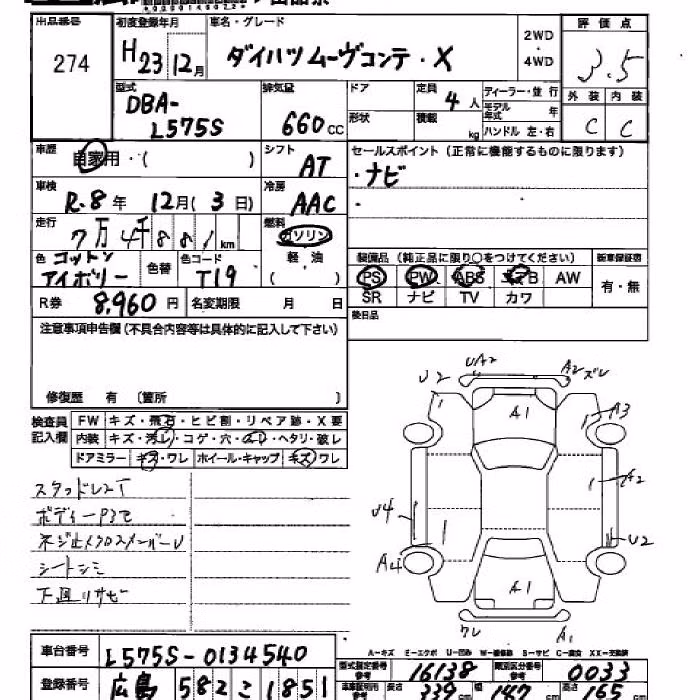 出品番号 初度登録年月 車名・グレード 評価点
274 H23 12月 ダイハツムーヴコンテ・X 2WD・4WD 3.5
外装 内装
C C
型式 排気量 ドア 定員 ディーラー・並行
DBA-L575S 660cc 4人 モデル年式 年
形状 積載 kg ハンドル 左・右
車歴 自家用・( ) シフト AT セールスポイント(正常に機能するものに限ります)
・ナビ
車検 R.8年 12月(3日) 冷房 AAC
・
走行 7万4千881km 燃料 ガソリン
軽・油
( )
色 コットンアイボリー 色替 色コード T19
装備品(純正品に限り〇をつけてください) 新車保証書
PS PW ABS エアB AW 有・無
SR ナビ TV カワ
R券 8,960円 名変期限 月 日
後日品
注意事項申告欄(不具合内容等は具体的に記入して下さい)
修復歴 有 〔箇所 〕
検査員記入欄 FW キズ・飛石・ヒビ割・リペア跡・X要
内装 キズ・汚レ・コゲ・穴・・ヘタリ・破レ
ドアミラー キズ・ワレ ホイール・キャップ キズ・ワレ
スタッドレスT
ネジ止メクロスメンバーU
シートシミ
下廻リサビ
U2 UA2 A2 ズレ
A1 A3
A2
U4 U2
A4 A1
ワレ A1
A-キズ E-エクボ U-凹み W-補修跡 S-サビ C-腐食 XX-交換済
車台番号 L575S-0134540
型式指定番号 参考 16138 類別区分番号 参考 0033
登録番号 広島 582 こ 1851
長さ 339 cm 幅 147 cm 高さ 165 cm